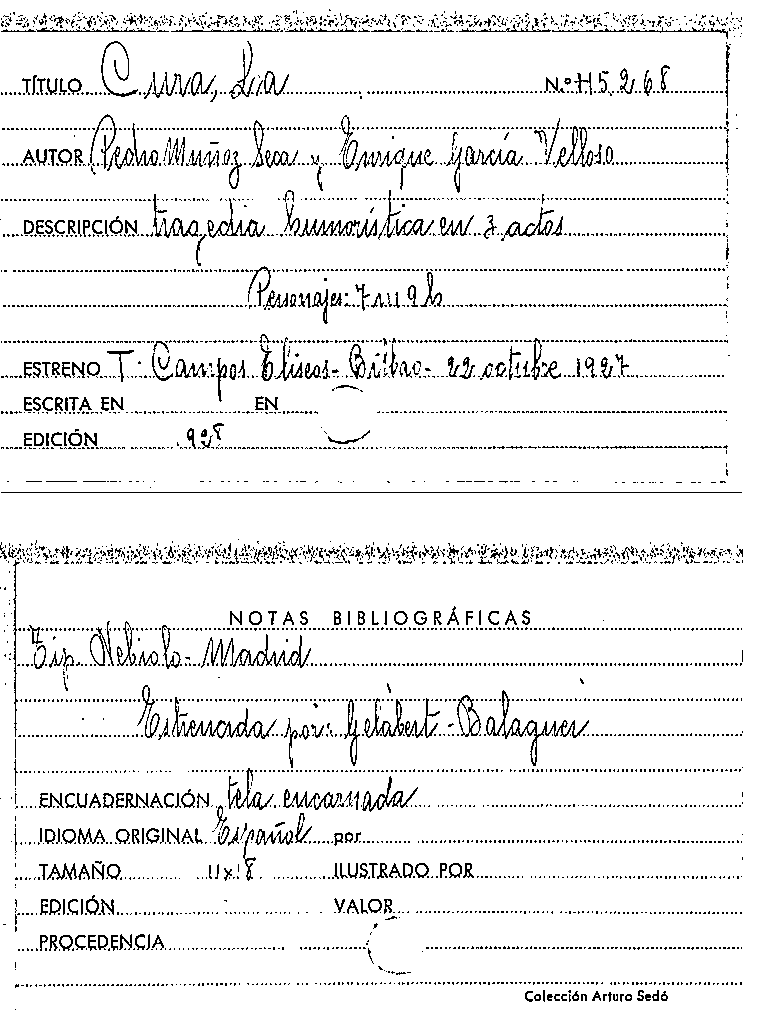 TÍTULO Cura, La N.º H5.268
AUTOR Pedro Muñoz Seca y Enrique García Velloso
DESCRIPCIÓN tragedia humorística en 3 actos
Personajes: 7 m 9 h
ESTRENO T. Campos Eliseos - Bilbao - 22 octubre 1927
ESCRITA EN EN
EDICIÓN 928
NOTAS BIBLIOGRÁFICAS
Tip. Nebiolo - Madrid
Estrenada por: Gelabert - Balaguer
ENCUADERNACIÓN tela encarnada
IDIOMA ORIGINAL Español por
TAMAÑO 11x18 ILUSTRADO POR
EDICIÓN VALOR
PROCEDENCIA
Colección Arturo Sedó